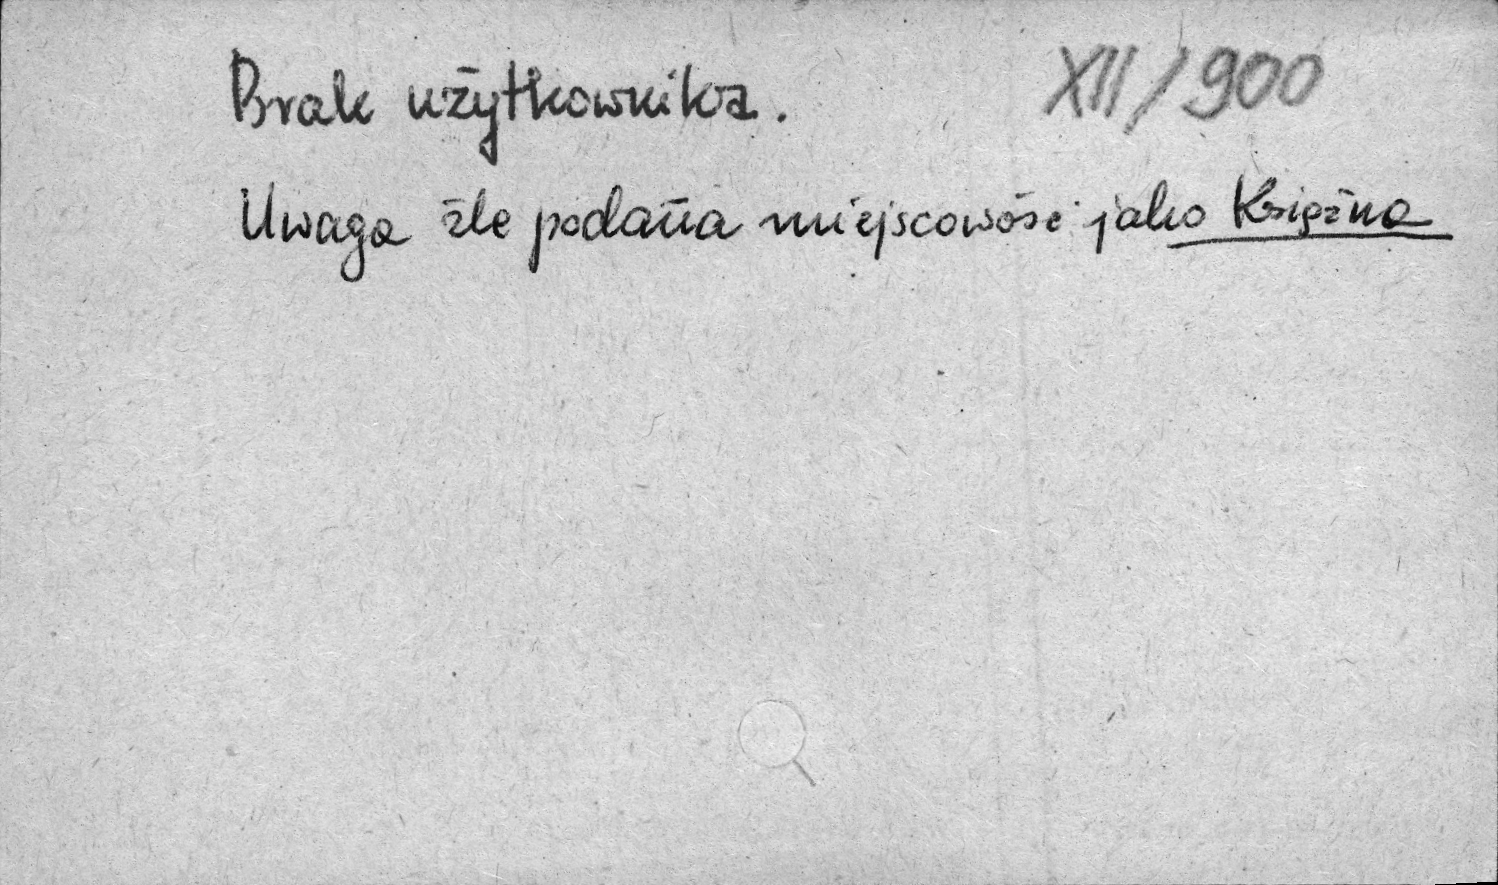 Brak użytkownika. XII/900
Uwaga źle podana miejscowość jako Księżna